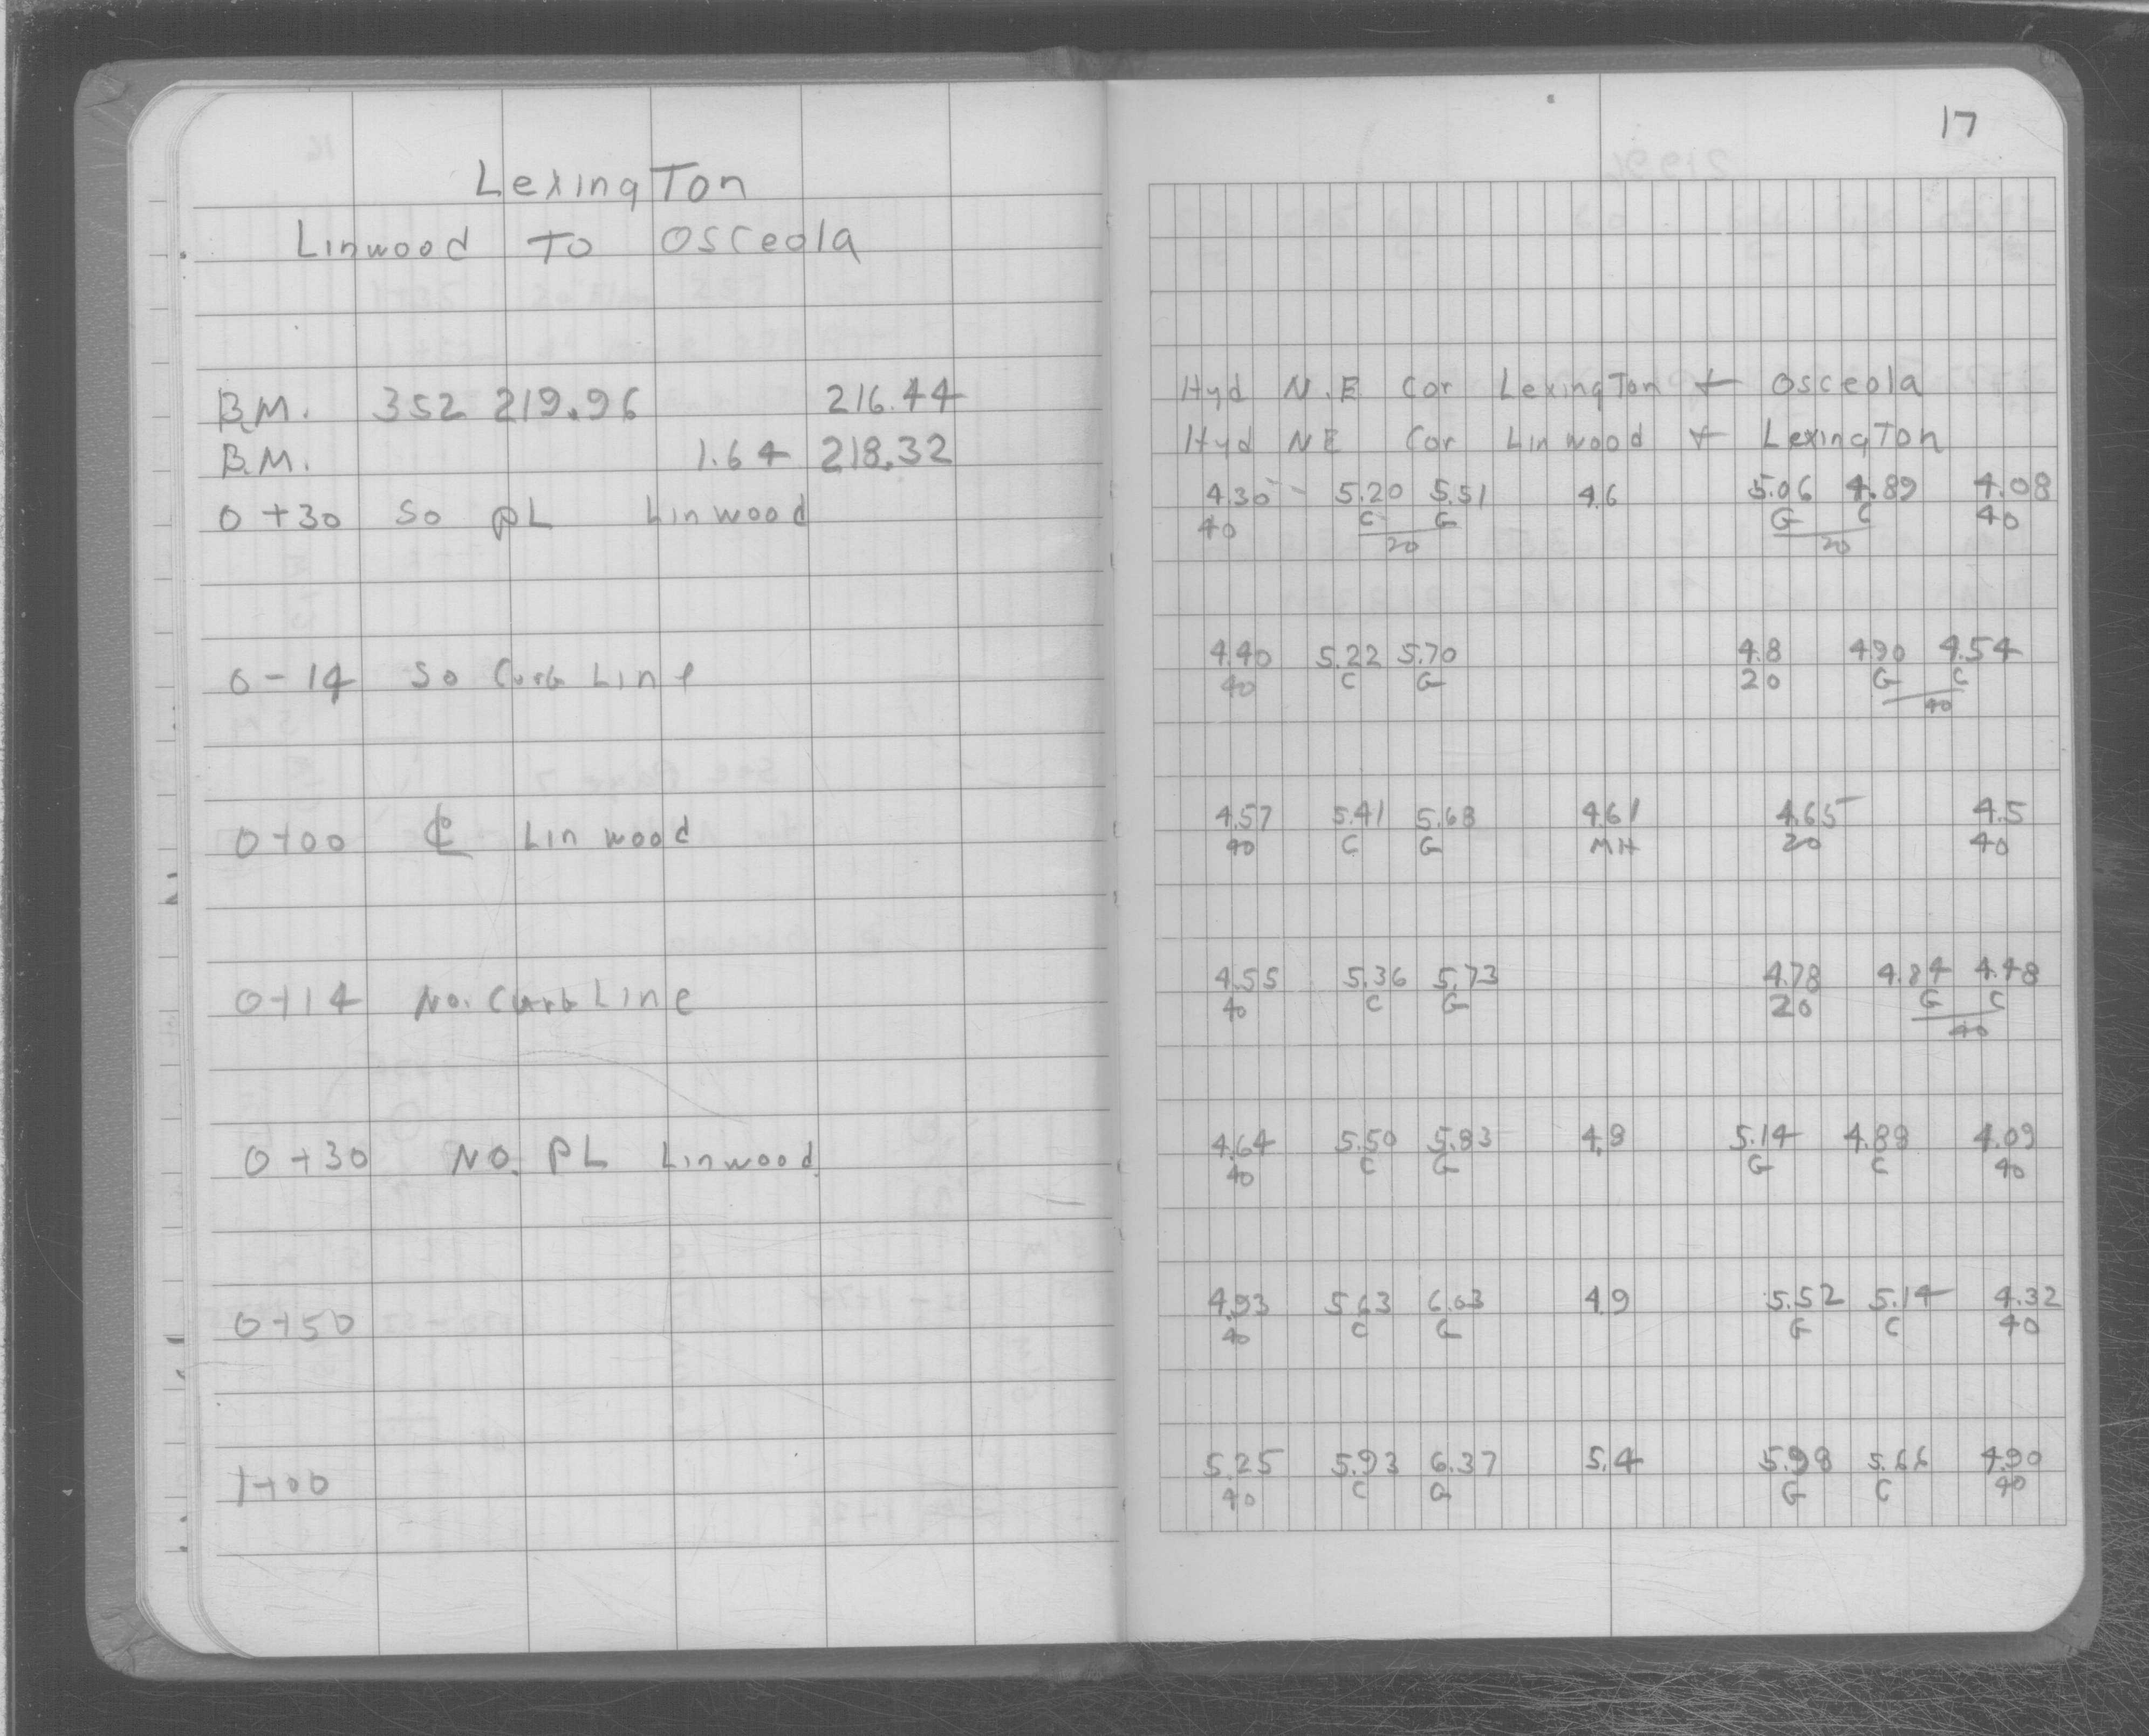 17
LexingTon
Linwood To Osceola
B.M. 352 219.96 216.44 Hyd N.E Cor LexingTon + Osceola
B.M. 1.64 218.32 Hyd NE Cor Linwood + LexingTon
0+30 So PL Linwood 4.30 5.20 5.51 4.6 5.06 4.89 4.08
40 C G G C 40
20 20
0-14 So Curb Line 4.40 5.22 5.70 4.8 4.90 4.54
40 C G 20 G C
40
0+00 ℄ Linwood 4.57 5.41 5.68 4.61 4.65 4.5
40 C G MH 20 40
0+14 No. Curb Line 4.55 5.36 5.73 4.78 4.84 4.48
40 C G 20 G C
40
0+30 NO. PL Linwood 4.64 5.50 5.83 4.8 5.14 4.88 4.09
40 C G G C 40
0+50 4.93 5.63 6.03 4.9 5.52 5.14 4.32
40 C G G C 40
1+00 5.25 5.93 6.37 5.4 5.98 5.66 4.90
40 C G G C 40